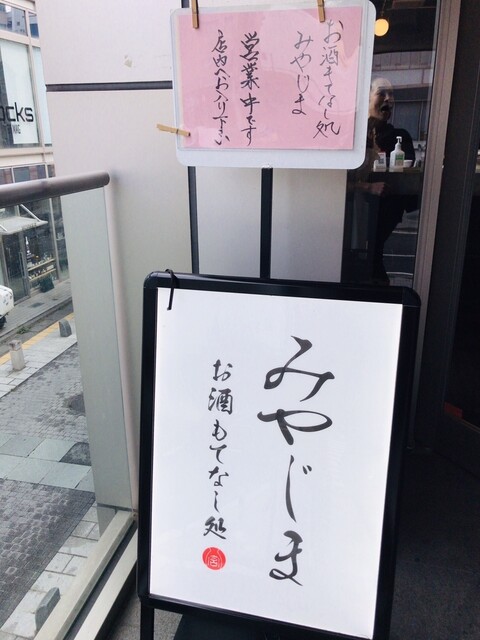 お酒もてなし処
みやじま
営業中です
店内へお入り下さい
みやじま
お酒もてなし処
ocks